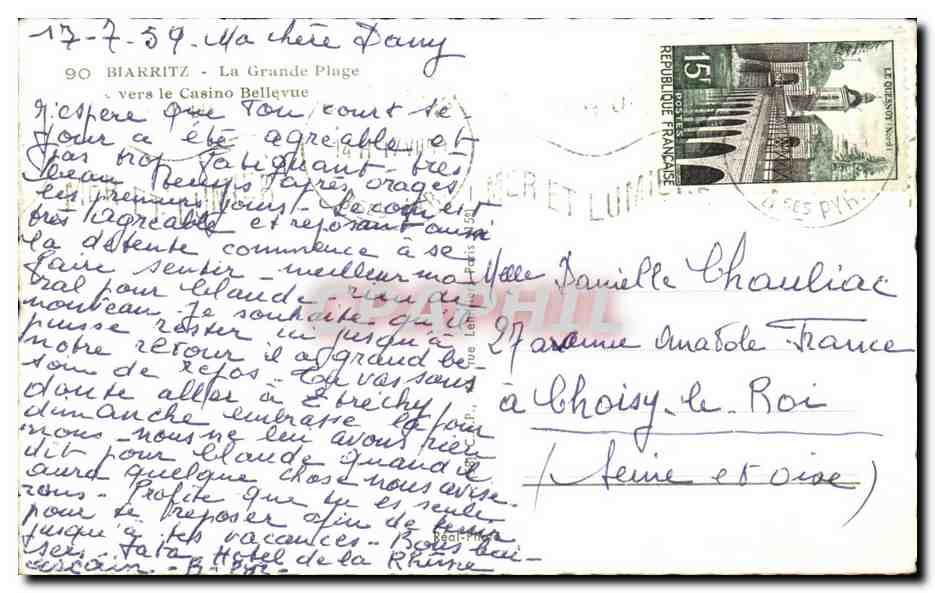 17-7-59. Ma chère Dany
90 BIARRITZ - La Grande Plage
vers le Casino Bellevue
J'espère que ton court sé
jour a été agréable et
pas trop fatiguant - très
beau temps après orages
les premiers jours - Le coin est
très agréable et reposant aussi
la détente commence à se
faire sentir - meilleur mo
ral pour Claude - rien de
nouveau. Je souhaite qu'il
puisse rester ici jusqu'à
notre retour il a grand be-
soin de repos - Tu vas sans
doute aller à Etréchy
dimanche embrasse la pour
nous - nous ne leur avons rien
dit pour Claude quand il
aura quelque chose nous avise-
rons - Profite que tu es seule
pour te reposer afin de tenir
jusqu'à tes vacances - Bons bai-
sers - Tata Hotel de la Rhune
15F
POSTES
REPUBLIQUE FRANÇAISE
LE QUESNOY (NORD)
MER ET LUMI
SES PYR.
Melle Danielle Chauliac
27 avenue Anatole France
à Choisy-le-Roi
(Seine et Oise)
CAPHIL
Paris